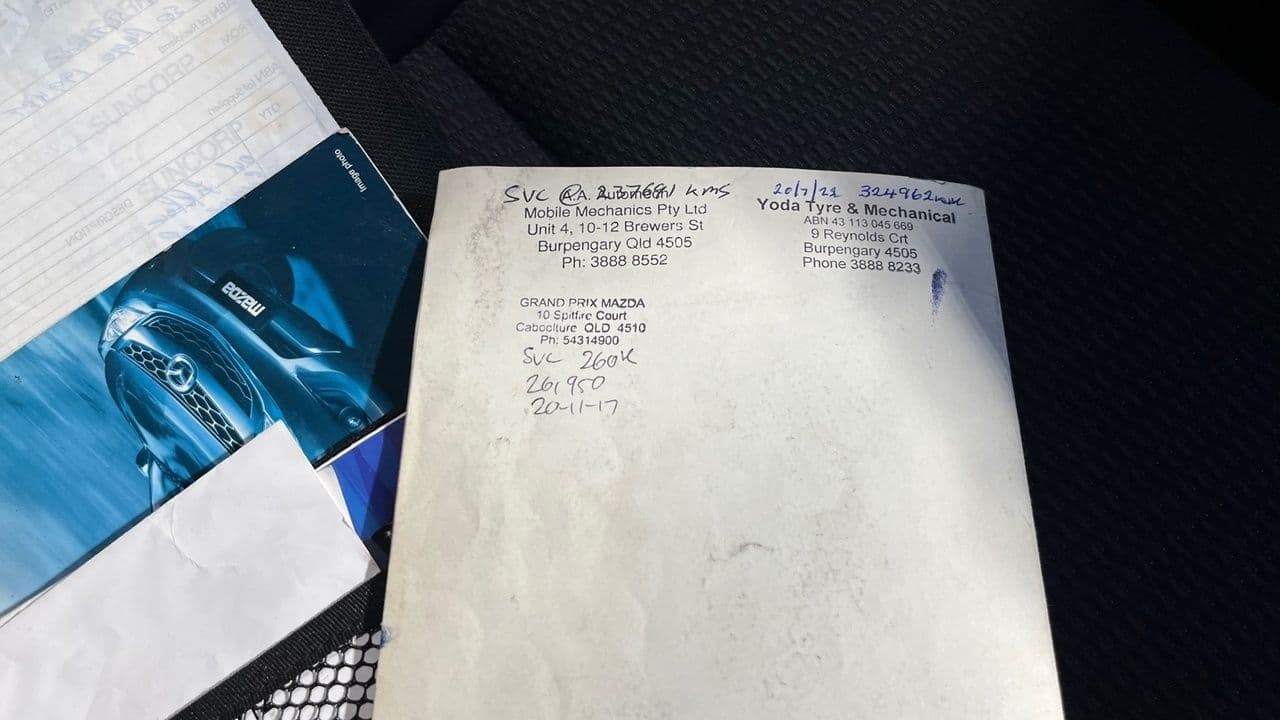 SVC @ 237691 kms
A.A. Automech
Mobile Mechanics Pty Ltd
Unit 4, 10-12 Brewers St
Burpengary Qld 4505
Ph: 3888 8552
20/7/22 324962
Yoda Tyre & Mechanical
ABN 43 113 045 669
9 Reynolds Crt
Burpengary 4505
Phone 3888 8233
GRAND PRIX MAZDA
10 Spitfire Court
Caboolture QLD 4510
Ph: 54314900
SVC 260K
26,950
20-11-17
Image photo
mazda
SUNCORP
SUNCORP
ABN of Supplier
QTY
DESCRIPTION